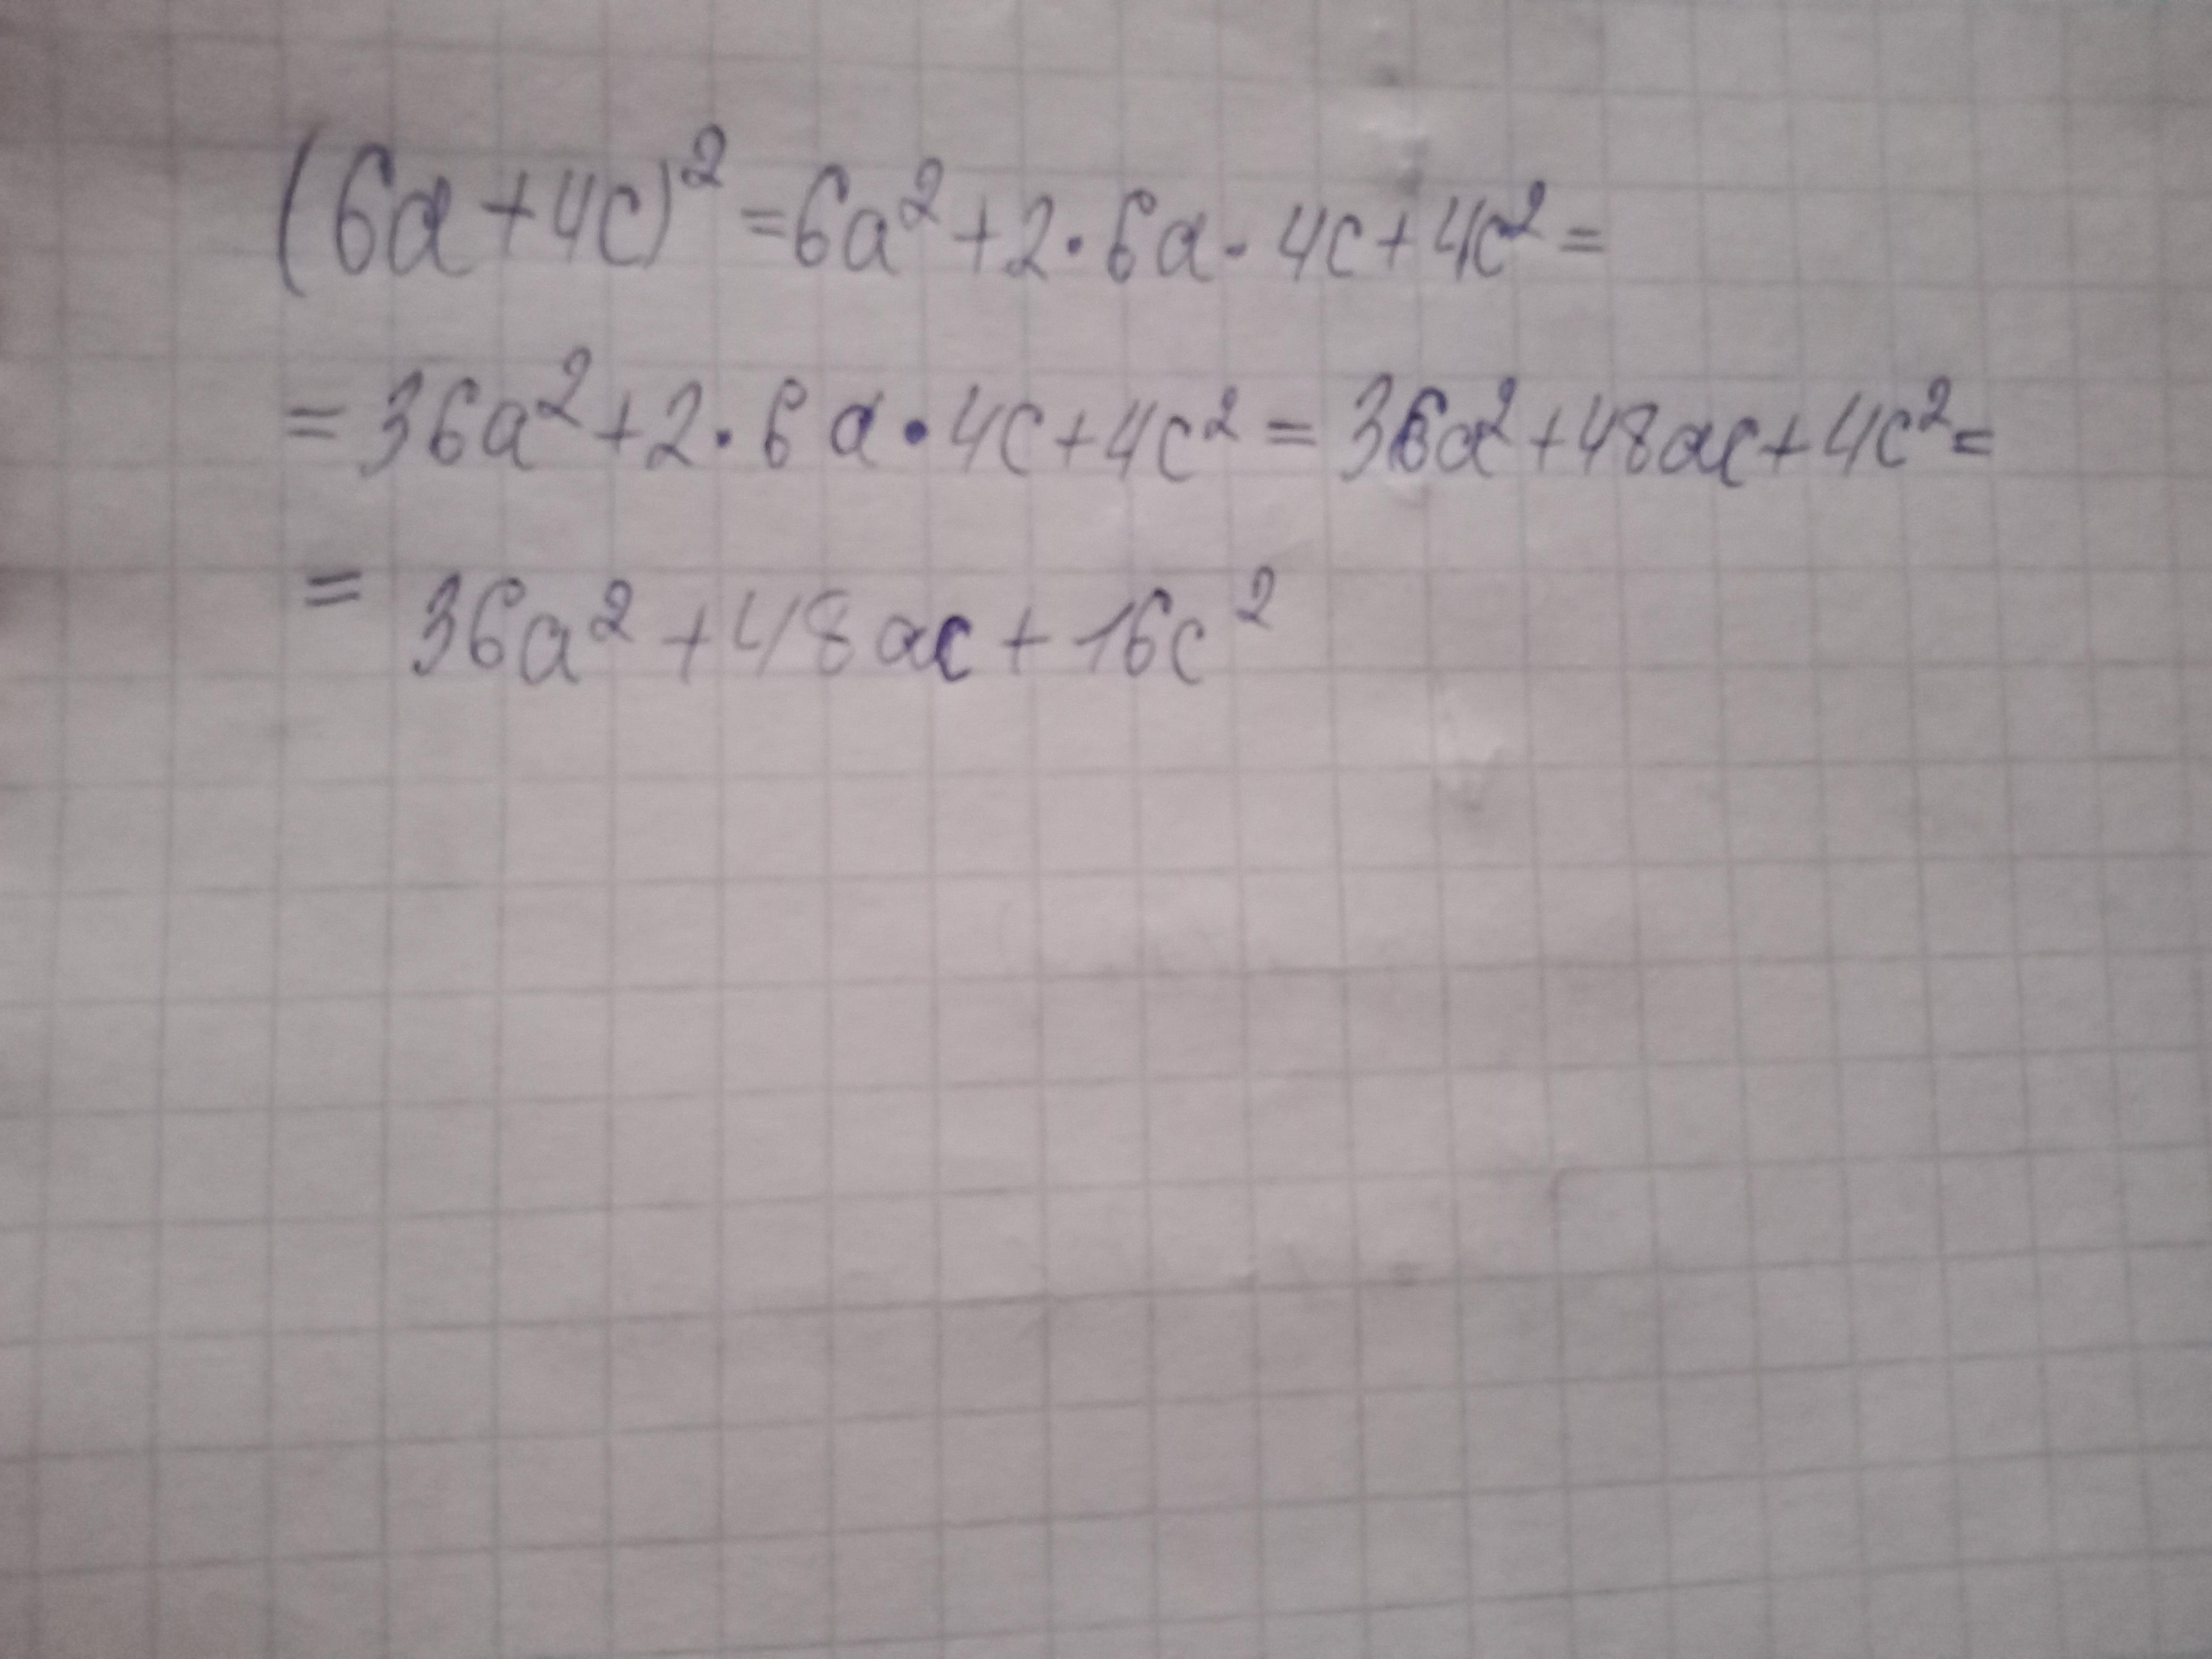 (6a+4c)²=6a²+2·6a·4c+4c²=
=36a²+2·6a·4c+4c²=36a²+48ac+4c²=
=36a²+48ac+16c²